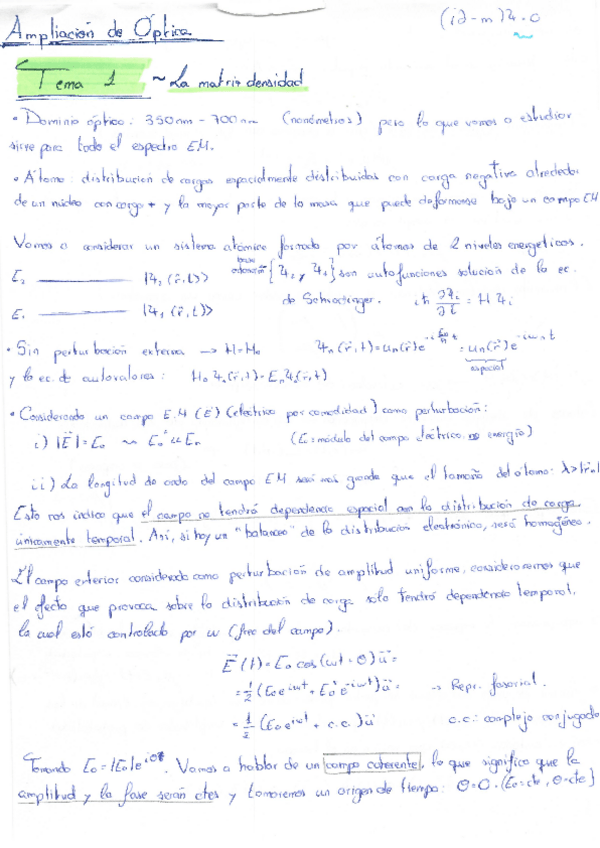 Ampliación de Óptica
(i∂-m)ψ=0
Tema 1 ~ La matriz densidad
• Dominio óptico: 350nm - 700nm (nanómetros) pero lo que vamos a estudiar
sirve para todo el espectro EM.
• Átomo: distribucion de cargas espacialmente distribuidas con carga negativa alrededor
de un núcleo con carga + y la mayor parte de la masa que puede deformarse bajo un campo EM
Vamos a considerar un sistema atómico formado por átomos de 2 niveles energéticos.
E₂ |ψ₂(r⃗,t)>> {ψ₁ y ψ₂} son autofunciones solucion de la ec.
E₁ |ψ₁(r⃗,t)>> de Schrödinger. iħ ∂ψᵢ/∂t = Hψᵢ
• Sin perturbación externa → H=H₀ ψₙ(r⃗,t)=uₙ(r⃗)e^(-i Eₙ/ħ t) = uₙ(r⃗)e^(-iωₙt)
espacial
y la ec. de autovalores: H₀ψₙ(r⃗,t)=Eₙψₙ(r⃗,t)
• Considerando un campo E.M (E) (eléctrico por comodidad) como perturbación:
i) |E⃗|=E₀ ~ E₀ << Eₙ (E=módulo del campo eléctrico no energía)
ii) La longitud de onda del campo EM será más grande que el tamaño del átomo: λ>
Esto nos indica que el campo no tendrá dependencia espacial con la distribución de carga
únicamente temporal. Así, si hay un "balanceo" de la distribución electrónica, será homogéneo.
El campo exterior considerado como perturbación de amplitud uniforme, consideraremos que
el efecto que provoca sobre la distribución de carga solo tendrá dependencia temporal,
la cual está controlado por ω (frec del campo).
E⃗(t)=E₀cos(ωt-θ)u⃗=
=½(E₀e^(iωt)+E₀*e^(-iωt))u⃗= → Repr. fasorial.
=½(E₀e^(iωt)+c.c.)u⃗ c.c.: complejo conjugado
Tomando E₀=|E₀|e^(iθ). Vamos a hablar de un campo coherente, lo que significa que la
amplitud y la fase serán ctes y tomaremos un origen de tiempo: θ=0. (E₀=cte, θ=cte)